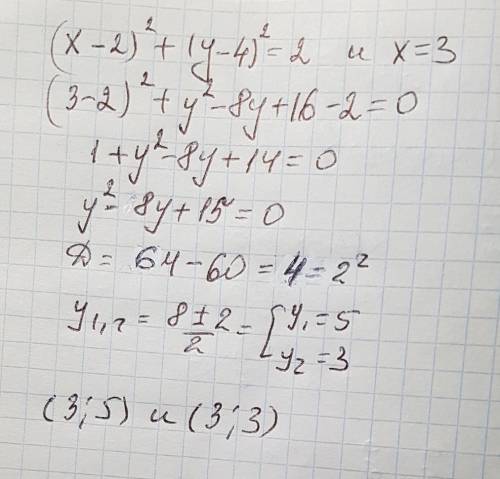 (x-2)² + (y-4)² = 2 и x=3
(3-2)² + y² - 8y + 16 - 2 = 0
1 + y² - 8y + 14 = 0
y² - 8y + 15 = 0
Д = 64 - 60 = 4 = 2²
y₁,₂ = 8±2/2 = [y₁ = 5
y₂ = 3
(3;5) и (3;3)